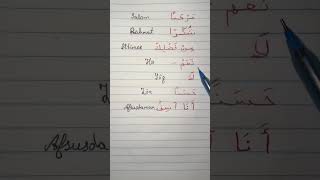 Salam مَرْحَبًا
Rahmat شُكْرًا
Iltimos مِنْ فَضْلِكَ
Ha نَعَمْ
لَا
حَسَنًا
Afsusdaman أَنَا آسِفٌ
نَعَمْ
لَا
حَسَنًا
أَنَا
Afsusda